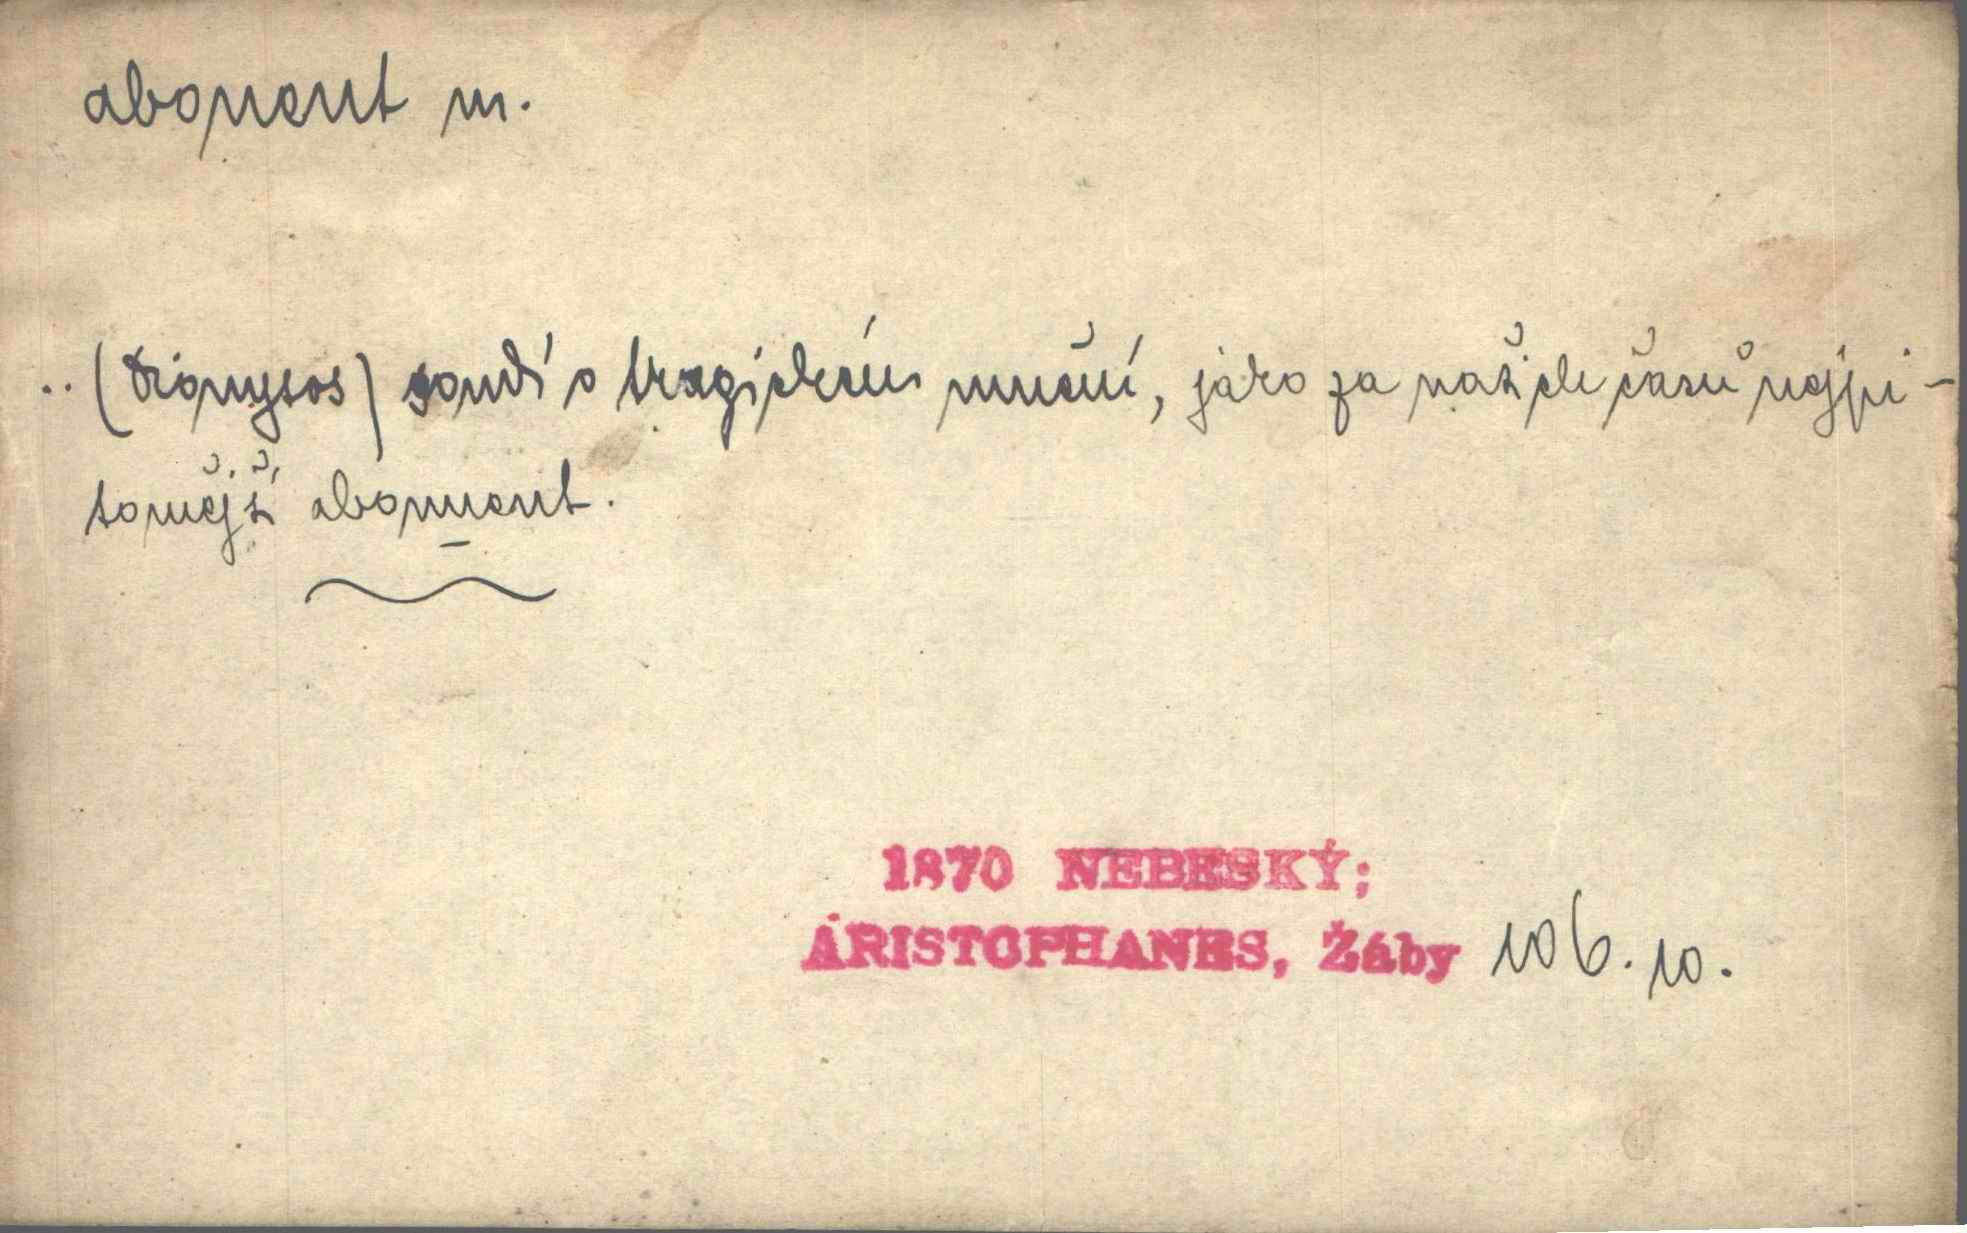 abonent m.
.. (Dionysos) soudí o tragickém umění, jako za našich časů nejpi-
tomější abonnent.
1870 NEBESKÝ;
ARISTOPHANES, Žáby 106.10.